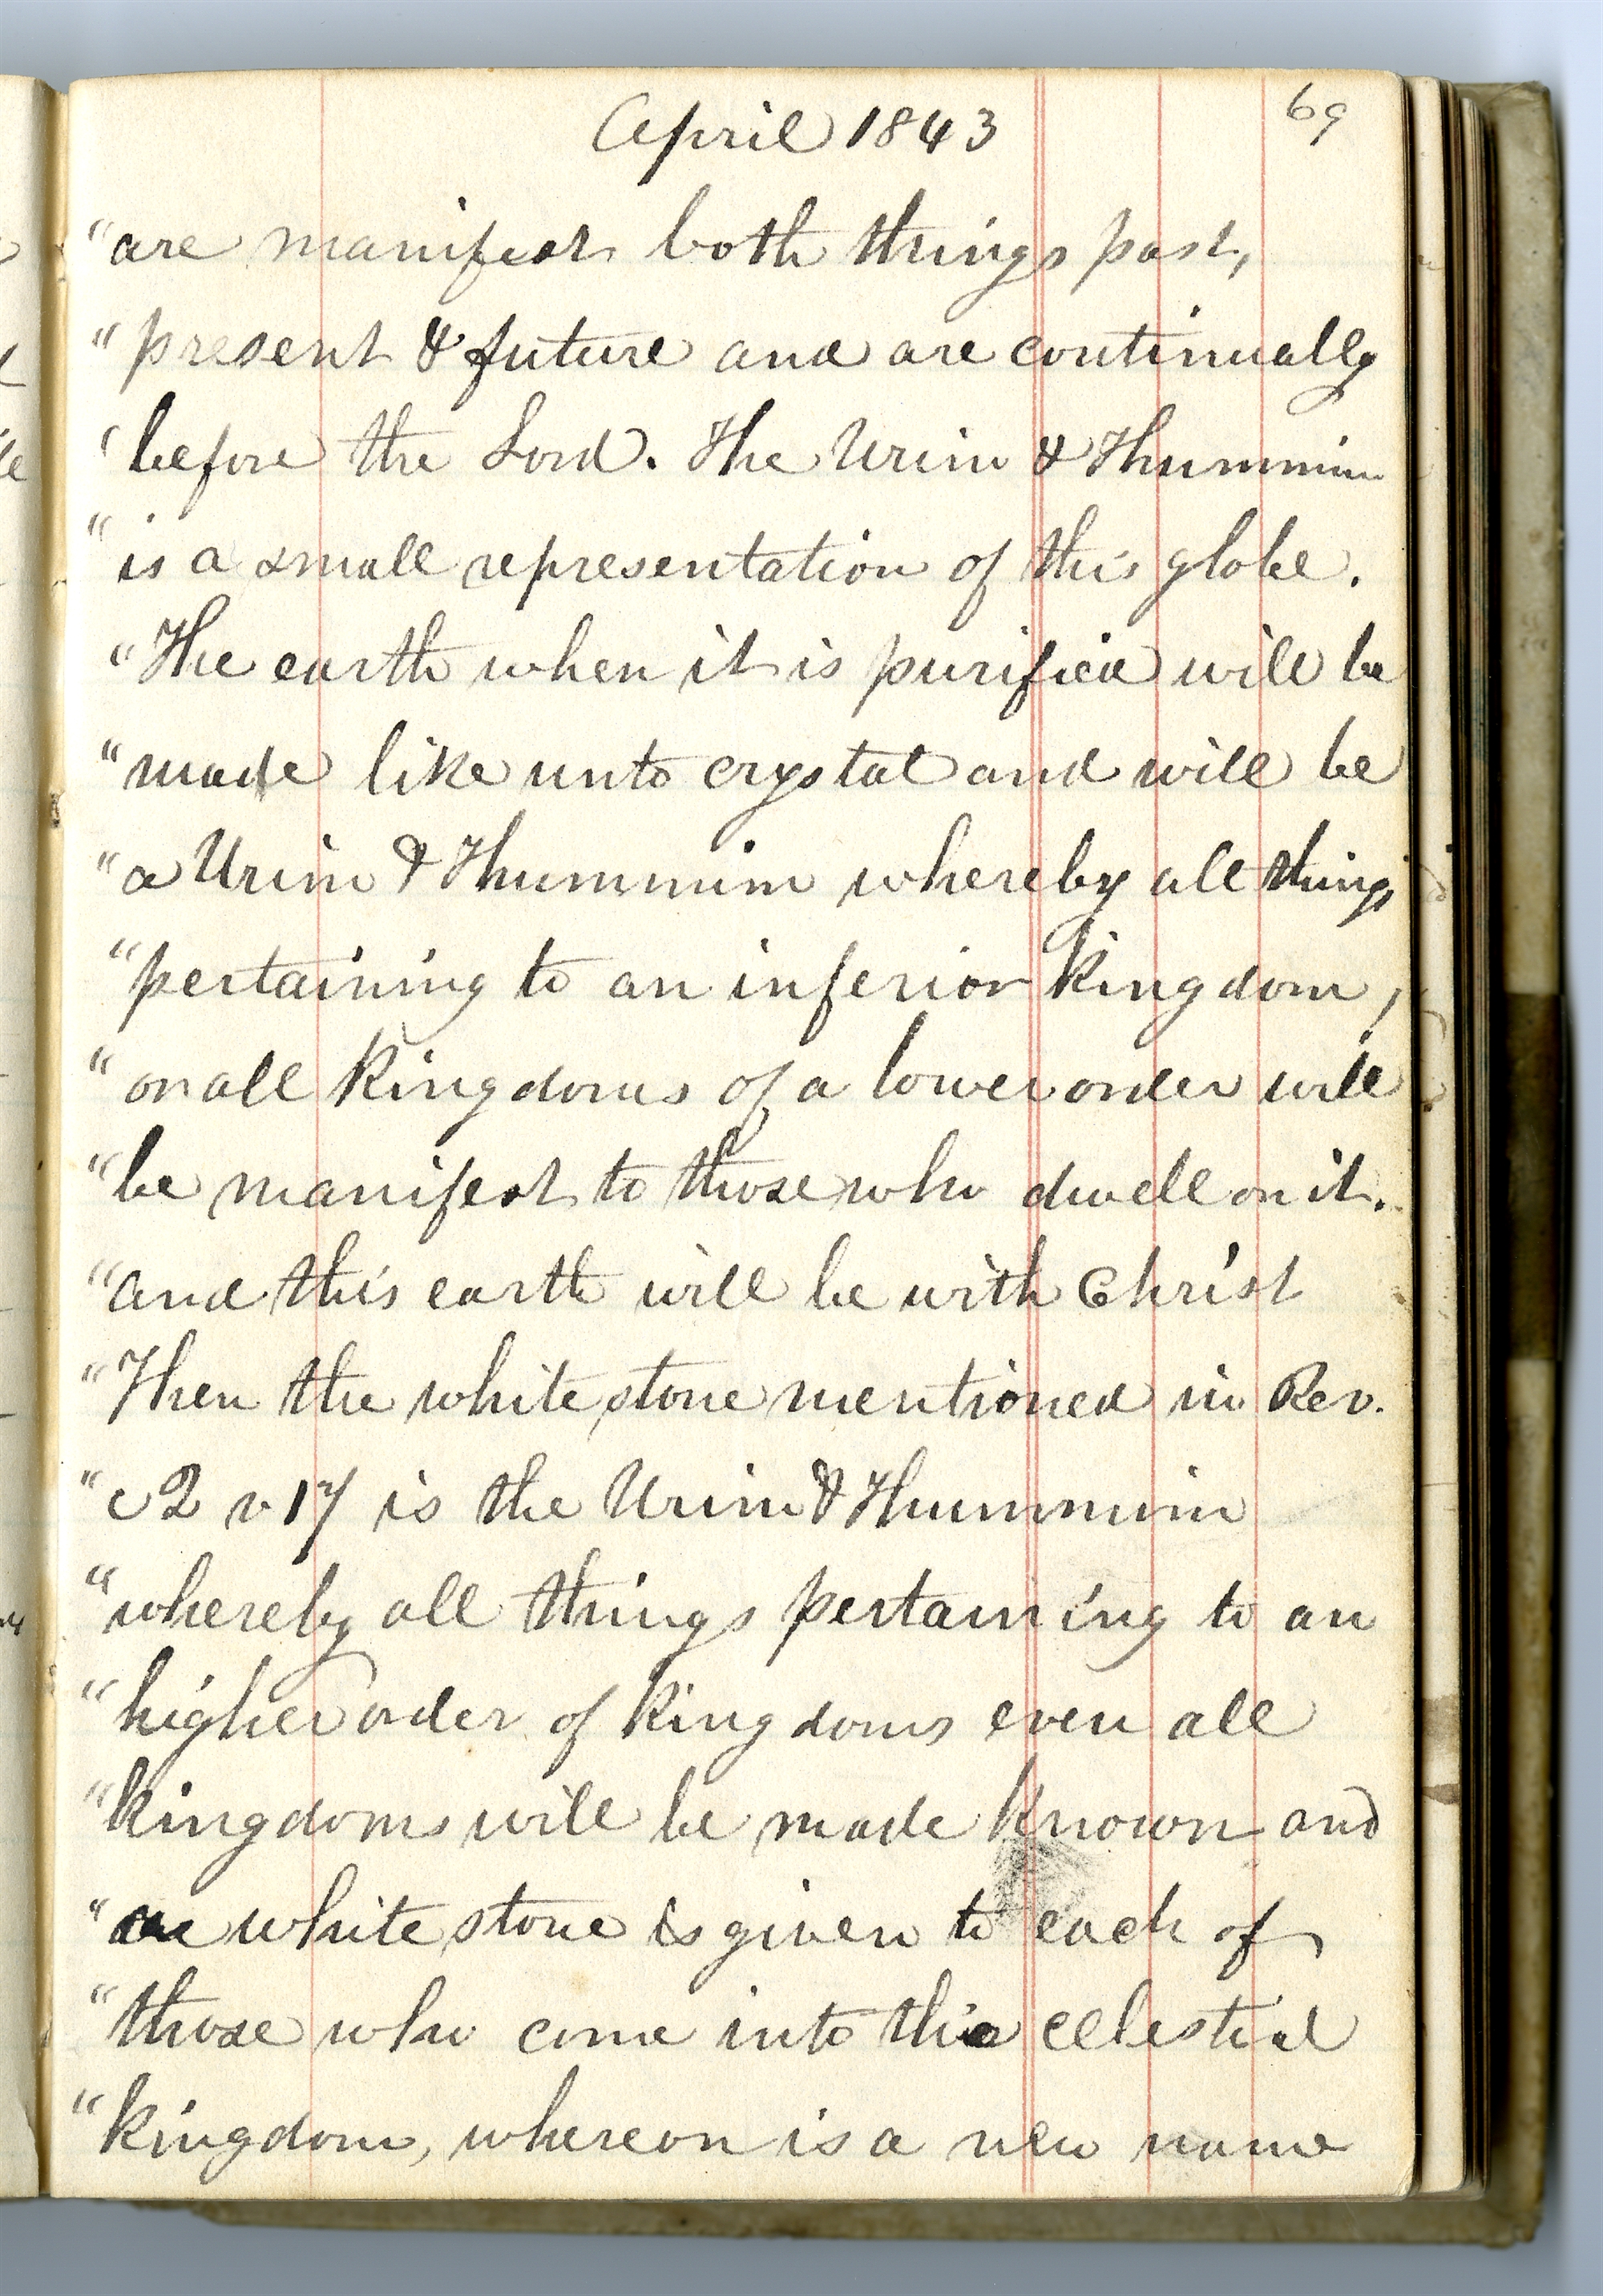 April 1843
69
"are manifest both things past,
"present & future and are continually
'before the Lord. The Urim & Thummim
"is a small representation of this globe.
"The earth when it is purified will be
"made like unto crystal and will be
"a Urim & Thummim whereby all things
"pertaining to an inferior kingdom,
"or all kingdoms of a lower order will
"be manifest to those who dwell on it.
"and this earth will be with Christ
"Then the white stone mentioned in Rev.
"c2 v17 is the Urim & Thummim
"whereby all things pertaining to an
"higher order of kingdoms even all
"kingdoms will be made known and
"a white stone is given to each of
"those who come into this celestial
"kingdom, whereon is a new name